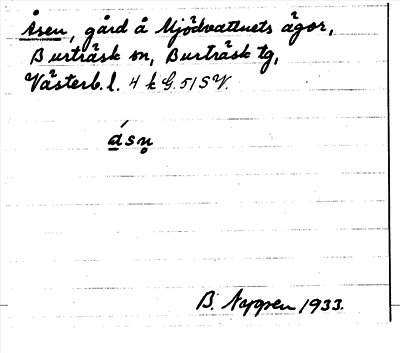 Åsen, gård å Mjödvattnets ägor,
Burträsk sn, Burträsk tg,
Västerb. l. 4 k G. 51 SV.
åsn̥
B. Nygren 1933.